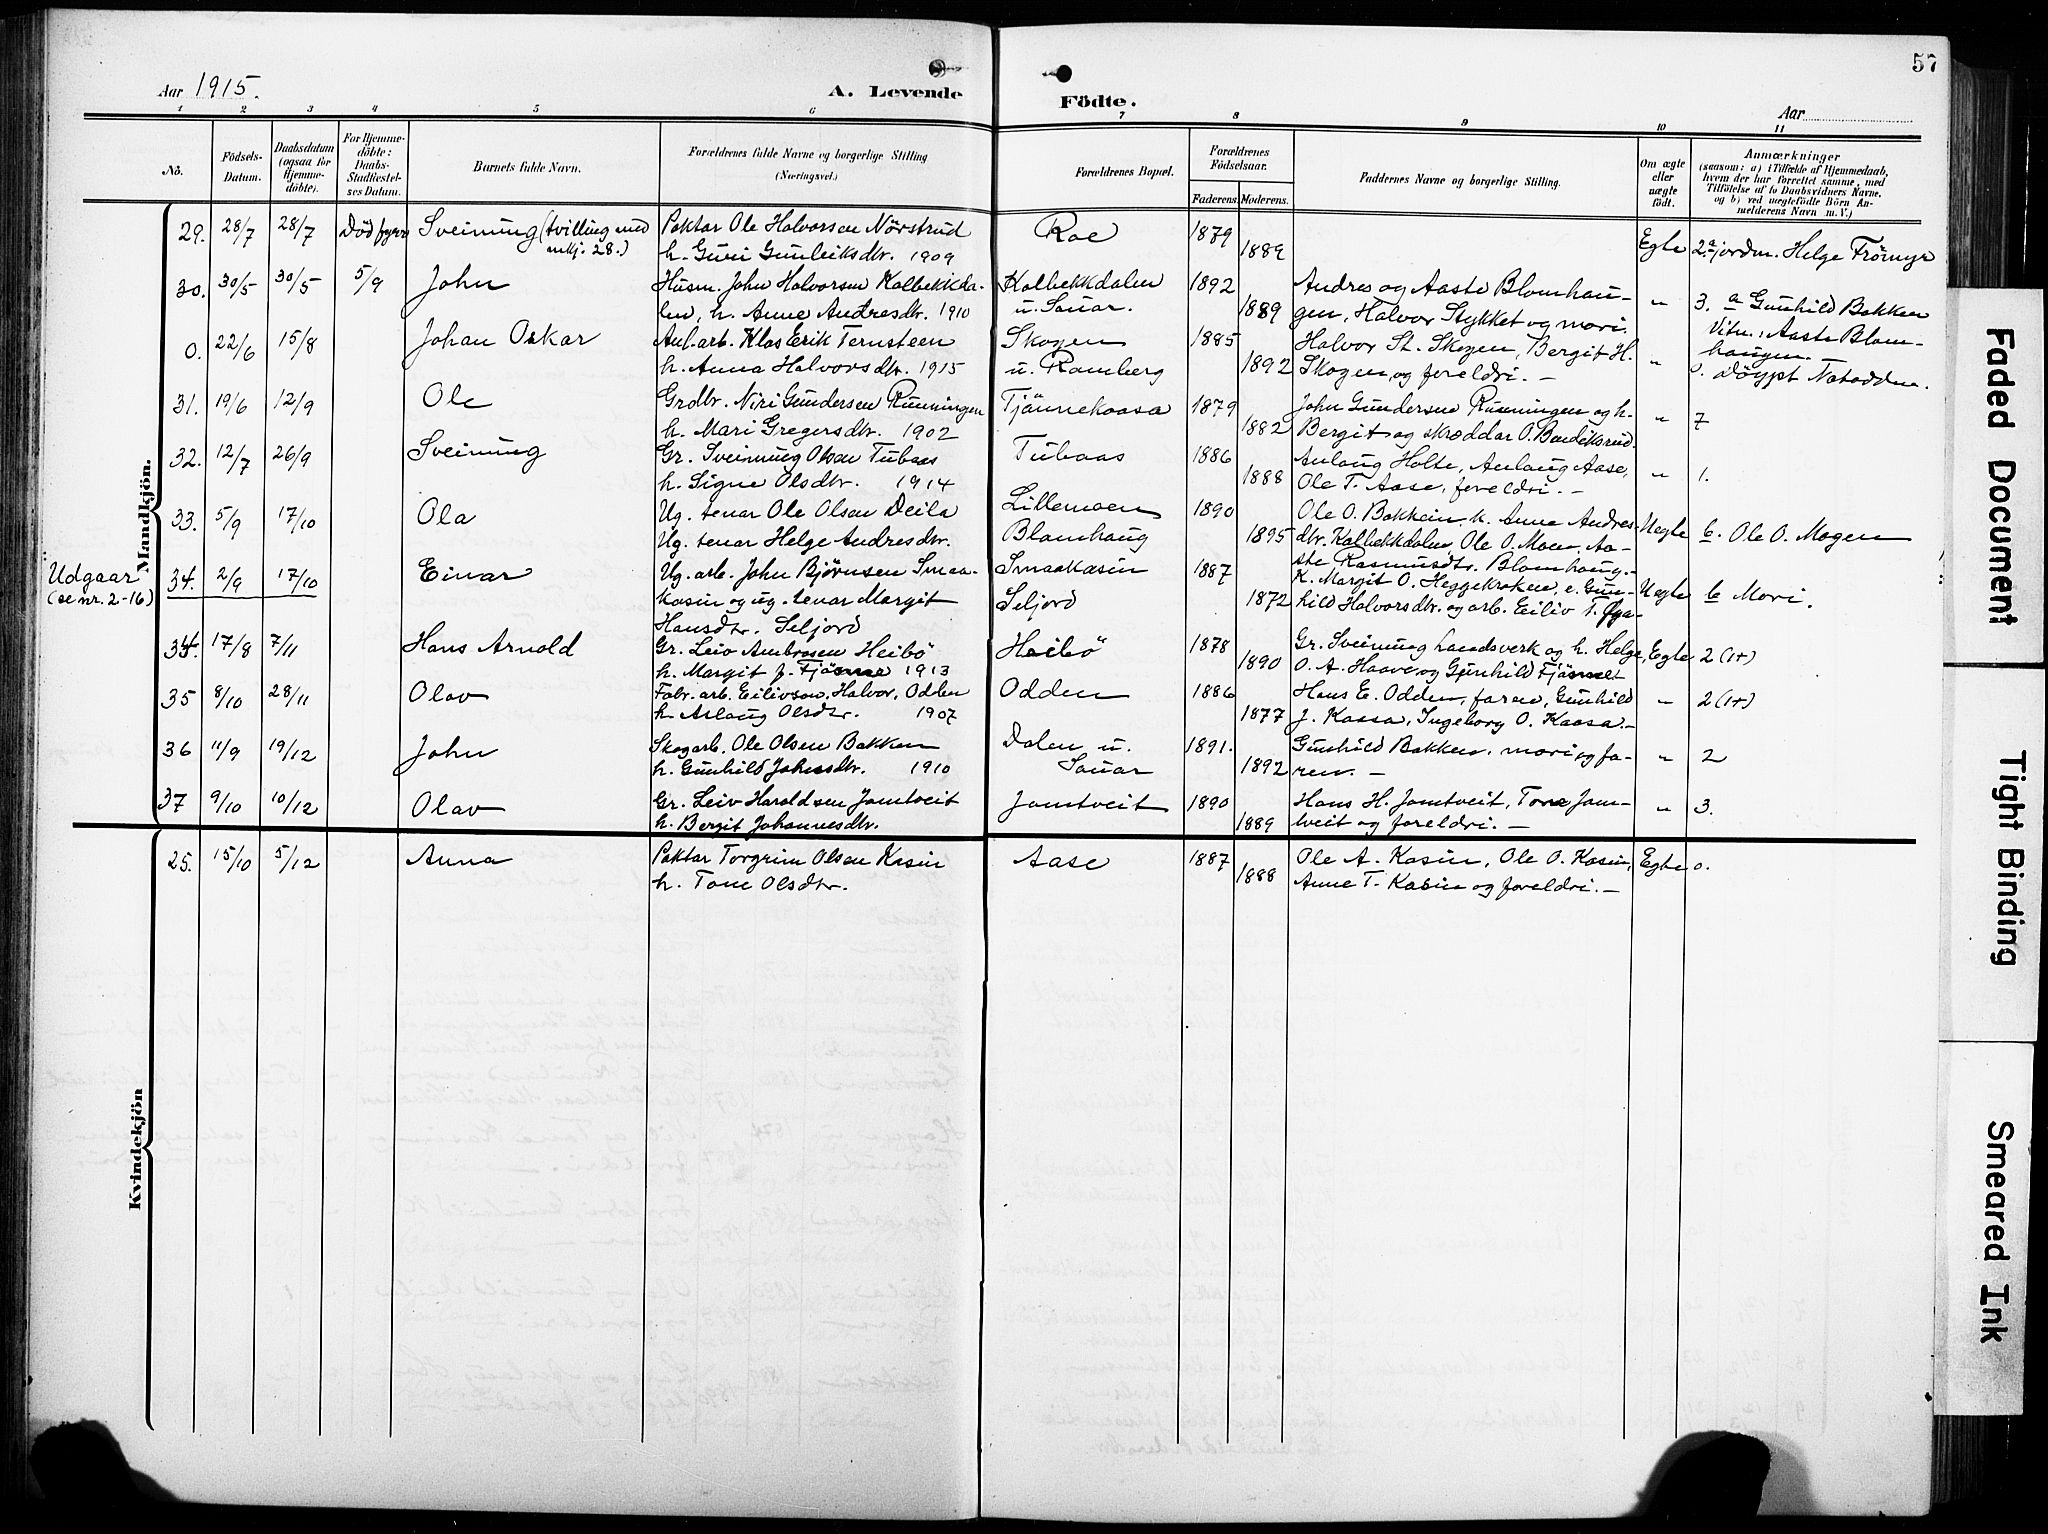 57
Aar 1915.
A. Levende
Födte.
Aar
1 2 3 4 5 6 7 8 9 10 11
No.
Födsels-Datum.
Daabsdatum (ogsaa for Hjemme-döbte).
For Hjemme-döbte: Daabs-Stadfæstel-ses Datum.
Barnets fulde Navn.
Forældrenes fulde Navne og borgerlige Stilling (Næringsvei.)
Forældrenes Bopæl.
Forældrenes Födselsaar.
Faderens. Moderens.
Faddernes Navne og borgerlige Stilling.
Om ægte eller uægte födt.
Anmærkninger (saasom: a) i Tilfælde af Hjemmedaab, hvem der har forrettet samme, med Tilföielse af to Daabsvidners Navne, og b) ved uægtefödte Börn An-melderens Navn m. V.)
Mandkjön.
29. 28/7 28/7 Död fyrr Sveinung (tvilling med mkj. 28.) Paktar Ole Halvorsen Nörstrud Roe 1879 Egte 2. a jordm. Helge Frömyr
h. Guri Gunleiksdtr. 1909 1889
30. 30/5 30/5 5/9 John Husm. John Halvorsen Kolbekkda- Kolbekkdalen 1892 Andres og Aaste Blomhau- " 3. a Gunhild Bakken
len, h. Anne Andresdtr. 1910 u. Sauar. 1889 gen, Halvor Stykket og mori. Vitn.: Aaste Blom-
haugen.
0. 22/6 15/8 Johan Oskar Anl.arb. Klas Erik Ternsteen Skogen 1885 Halvor St. Skogen, Bergit H. "
h. Anna Halvorsdtr. 1915 u. Ramberg 1892 Skogen, og foreldri. — 0. Döypt Notodden.
31. 19/6 12/9 Ole Grdbr. Niri Gundersen Runningen Tjönnekaasa 1879 John Gundersen Runningen og h. " 7
h. Mari Gregersdtr. 1902 1882 Bergit og skræddar O. Bendiksrud.
32. 12/7 26/9 Sveinung Gr. Sveinung Olsen Tubaas Tubaas 1886 Anlaug Holte, Anlaug Aase, " 1.
h. Signe Olsdtr. 1914 1888 Ole T. Aase, foreldri. —
33. 5/9 17/10 Ola Ug. tenar Ole Olsen Deila Lillemoen 1890 Ole O. Bakkein, k. Anne Andres- Uegte b. Ole O. Mogen
Ug. tenar Helge Andresdtr. Blomhaug 1895 dtr. Kolbekkdalen, Ole O. Moen, Aa-
ste Rasmusdtr. Blomhaug. —
Udgaar (se nr. 2-16)
34. 2/9 17/10 Einar Ug. arb. John Bjørnsen Smaa- Smaakasin 1887 K. Margit O. Heggekroken, e. Gun- Uegte b Mori.
kasin og ug. tenar Margit Seljord 1872 hild Halvorsdtr. og arb. Eiliv T.
Hansdtr. Seljord
34. 17/8 7/11 Hans Arnold Gr. Leiv Ambrosen Heibö Heibö 1878 Gr. Sveinung Landsverk og h. Helge, Egte 2 (1+)
h. Margit f. Fjösne 1913 1890 O. A. Haave og Gunhild
35 8/10 28/11 Olav Fabr. arb. Eilivson, Halvor, Odden Odden 1886 Hans E. Odden, faren, Gunhild " 2 (1+)
h. Aslaug Olsdtr. 1907 1877 J. Kaasa, Ingeborg O. Kaasa. —
36 11/9 19/12 John Skogarb. Ole Olsen Bakken Dalen u. 1891. Gunhild Bakken, mori og fa- " 2
h. Gunhild Johnsdtr. 1910 Sauar 1892 ren. —
37 9/10 10/12 Olav Gr. Leiv Haroldsen Jamtveit Jamtveit 1890 Hans H. Jamtveit, Tone Jam- " 3.
h. Bergit Johannesdtr. 1889 tveit og foreldri. —
Kvindekjön
25. 15/10 5/12 Anna Paktar Torgrim Olsen Kasin Aase 1887 Ole A. Kasin, Ole O. Kasin, Egte 0.
h. Tone Olsdtr. 1888 Anne T. Kasin og foreldri. —
Faded Document
Tight Binding
Smeared Ink